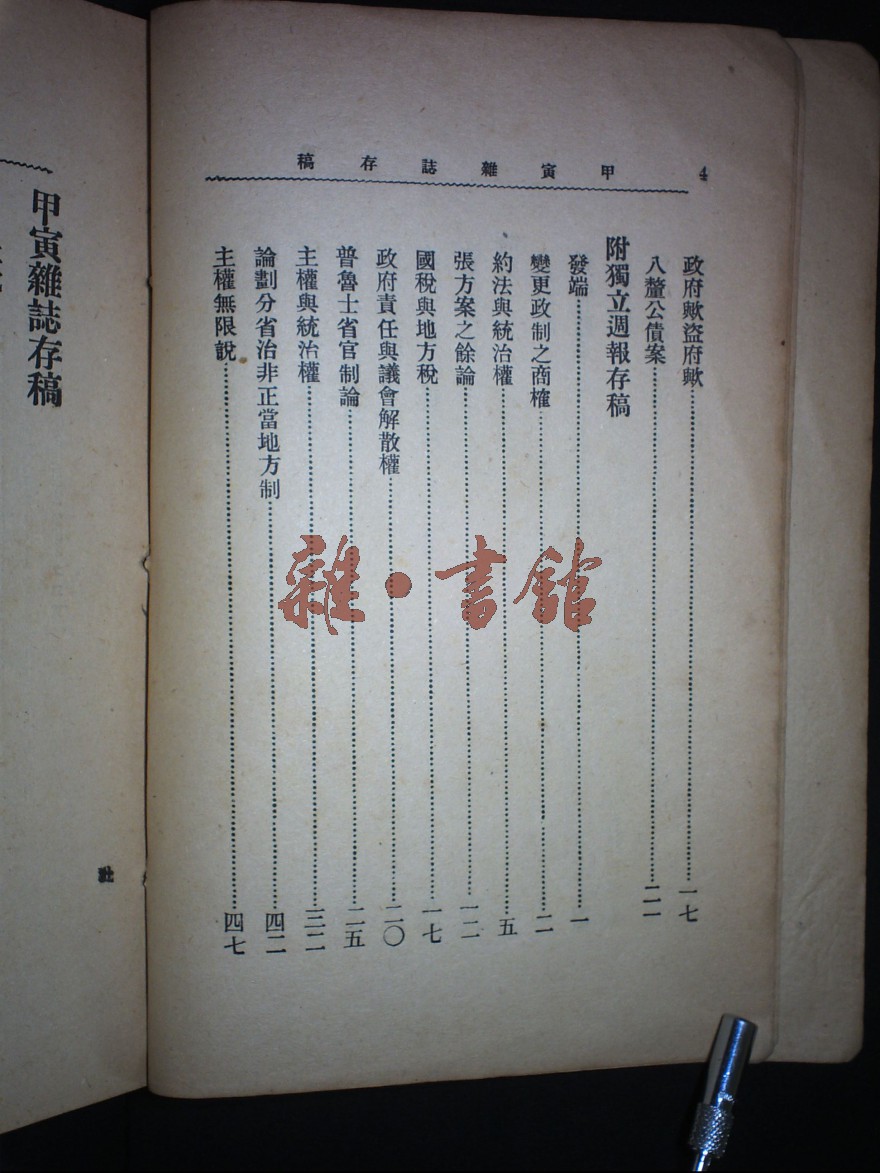 甲寅雜誌存稿
4
政府歟盜府歟⋯⋯一七
八釐公債案⋯⋯二一
附獨立週報存稿
發端⋯⋯一
變更政制之商榷⋯⋯二
約法與統治權⋯⋯五
張方案之餘論⋯⋯一二
國稅與地方稅⋯⋯一七
政府責任與議會解散權⋯⋯二〇
普魯士省官制論⋯⋯二五
主權與統治權⋯⋯三二
論劃分省治非正當地方制⋯⋯四二
主權無限說⋯⋯四七
甲寅雜誌存稿
雜・書館